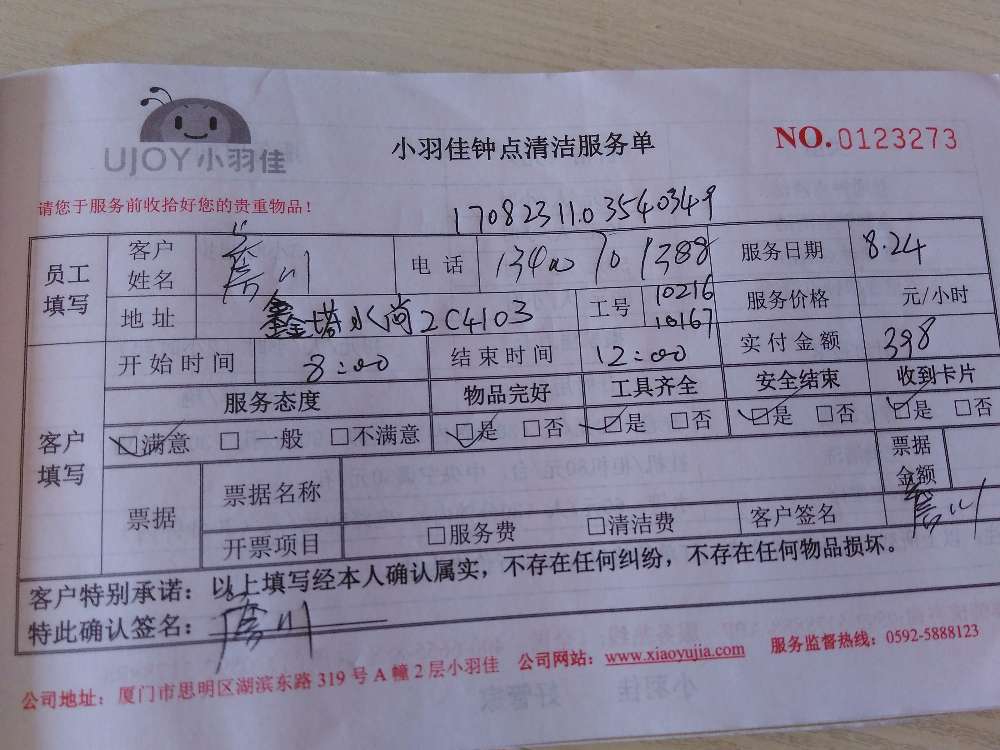 UJOY小羽佳
小羽佳钟点清洁服务单
NO.0123273
请您于服务前收拾好您的贵重物品!
170823110354 0349
员工填写 客户姓名 詹川 电话 13400701388 服务日期 8.24
地址 鑫塔水尚2C4103 工号 10216 10167 服务价格 元/小时
开始时间 8:00 结束时间 12:00 实付金额 398
客户填写 服务态度 物品完好 工具齐全 安全结束 收到卡片
☑满意 □一般 □不满意 ☑是 □否 ☑是 □否 ☑是 □否 ☑是 □否
票据 票据名称 票据金额
开票项目 □服务费 □清洁费 客户签名 詹川
客户特别承诺:以上填写经本人确认属实,不存在任何纠纷,不存在任何物品损坏。
特此确认签名:詹川
公司地址:厦门市思明区湖滨东路319号A幢2层小羽佳 公司网站:www.xiaoyujia.com 服务监督热线:0592-5888123